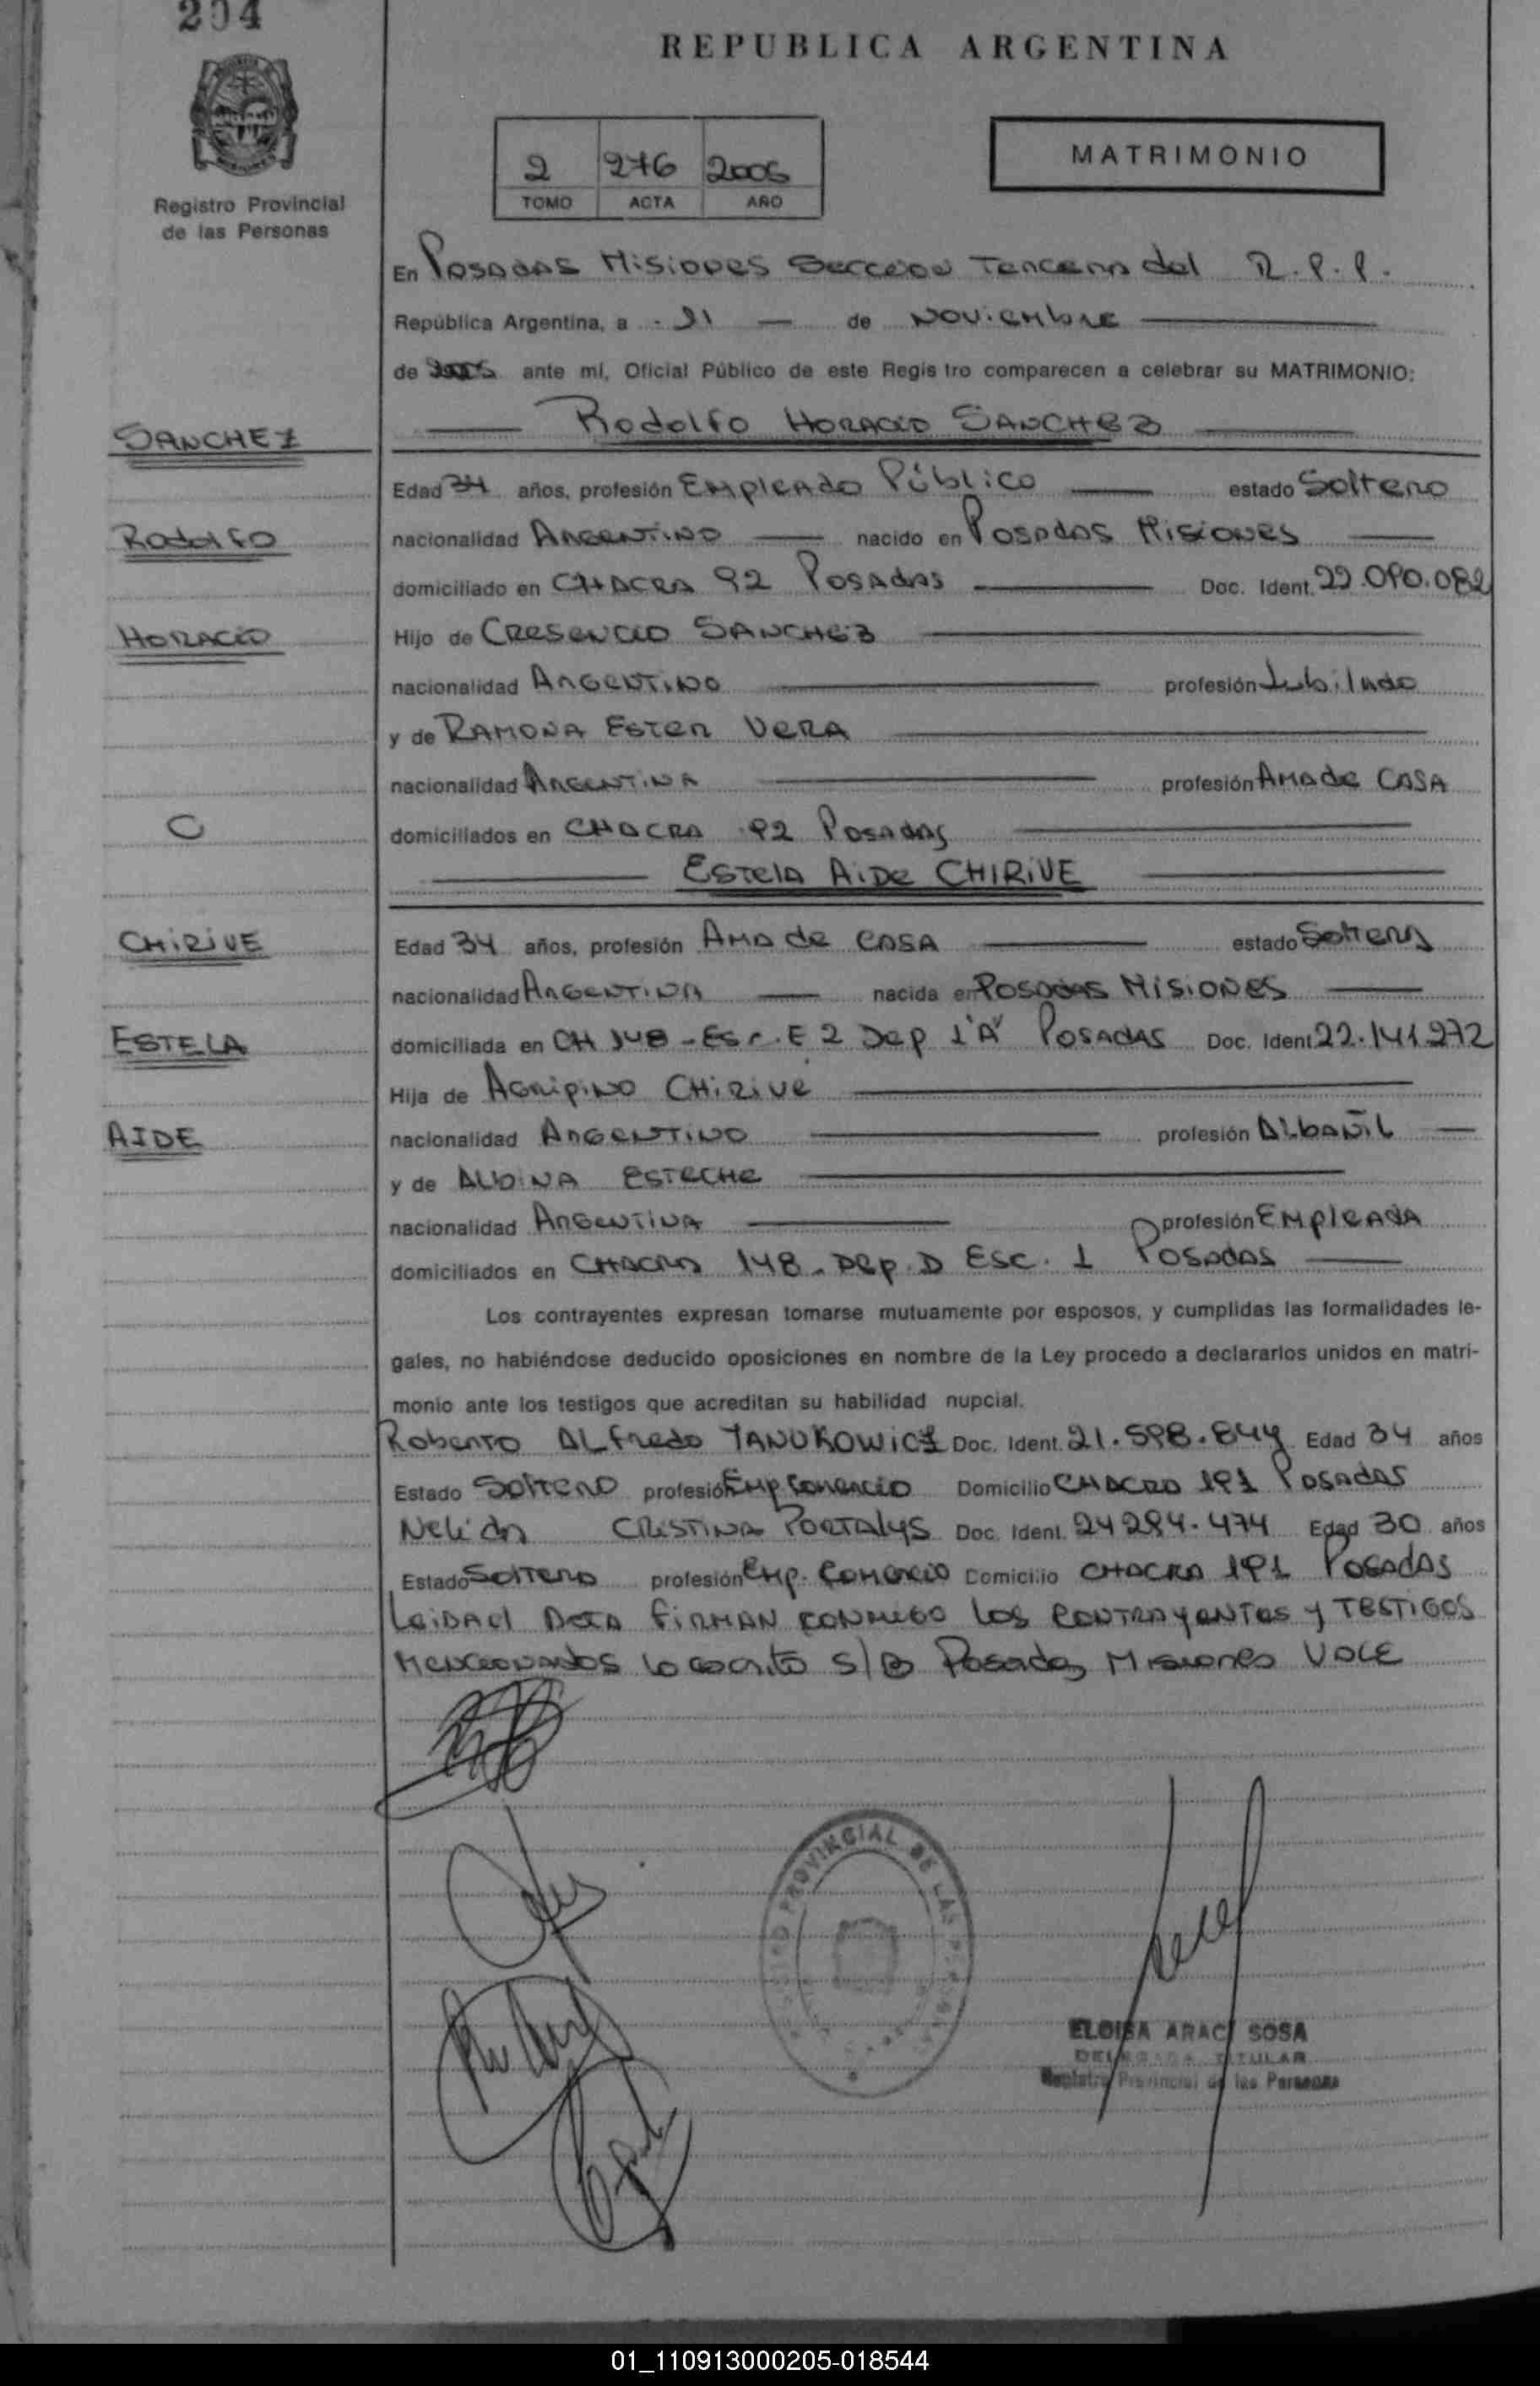 204
REPUBLICA ARGENTINA
Registro Provincial
de las Personas
2 276 2006
TOMO ACTA AÑO
MATRIMONIO
En Posadas Misiones Seccion Tercera del R.P.P.
República Argentina, a 21 de Noviembre
de ante mí, Oficial Público de este Registro comparecen a celebrar su MATRIMONIO:
SANCHEZ
Rodolfo HORACIO SANCHEZ
Edad 34 años, profesión Empleado Público estado Soltero
Rodolfo
nacionalidad ARGENTINO nacido en Posadas Misiones
domiciliado en CHACRA 92 POSADAS Doc. Ident. 22.090.082
HORACIO
Hijo de CRESENCIO SANCHEZ
nacionalidad ARGENTINO profesión Jubilado
y de RAMONA ESTER VERA
nacionalidad ARGENTINA profesión AMA de CASA
domiciliados en CHACRA 92 POSADAS
ESTELA AIDE CHIRIVE
CHIRIVE
Edad 34 años, profesión AMA de CASA estado Soltera
nacionalidad ARGENTINA nacida en POSADAS MISIONES
ESTELA
domiciliada en CH 148 - Esc. E 2 Dep 1 "A" POSADAS Doc. Ident 22.141.272
Hija de AGRIPINO CHIRIVE
AIDE
nacionalidad ARGENTINO profesión ALBAÑIL
y de ALBINA ESTECHE
nacionalidad ARGENTINA profesión EMPLEADA
domiciliados en CHACRA 148 - Dep. D Esc. 1 POSADAS
Los contrayentes expresan tomarse mutuamente por esposos, y cumplidas las formalidades le-
gales, no habiéndose deducido oposiciones en nombre de la Ley procedo a declararlos unidos en matri-
monio ante los testigos que acreditan su habilidad nupcial.
Roberto ALfredo YANUKOWICZ Doc. Ident. 21.598.844 Edad 34 años
Estado Soltero profesión Emp Comercio Domicilio CHACRA 191 POSADAS
Nelida CRISTINA PORTALYS Doc. Ident. 24284.474 Edad 30 años
Estado Soltera profesión Emp. Comercio Domicilio CHACRA 191 POSADAS
Leida el Acta FIRMAN CONMIGO los CONTRAYENTES y TESTIGOS
MENCIONADOS lo escrito s/B Posadas Misiones VALE
REGISTRO PROVINCIAL DE LAS PERSONAS
ELOISA ARACI SOSA
DELEGADA TITULAR
Registro Provincial de las Personas
01_110913000205-018544